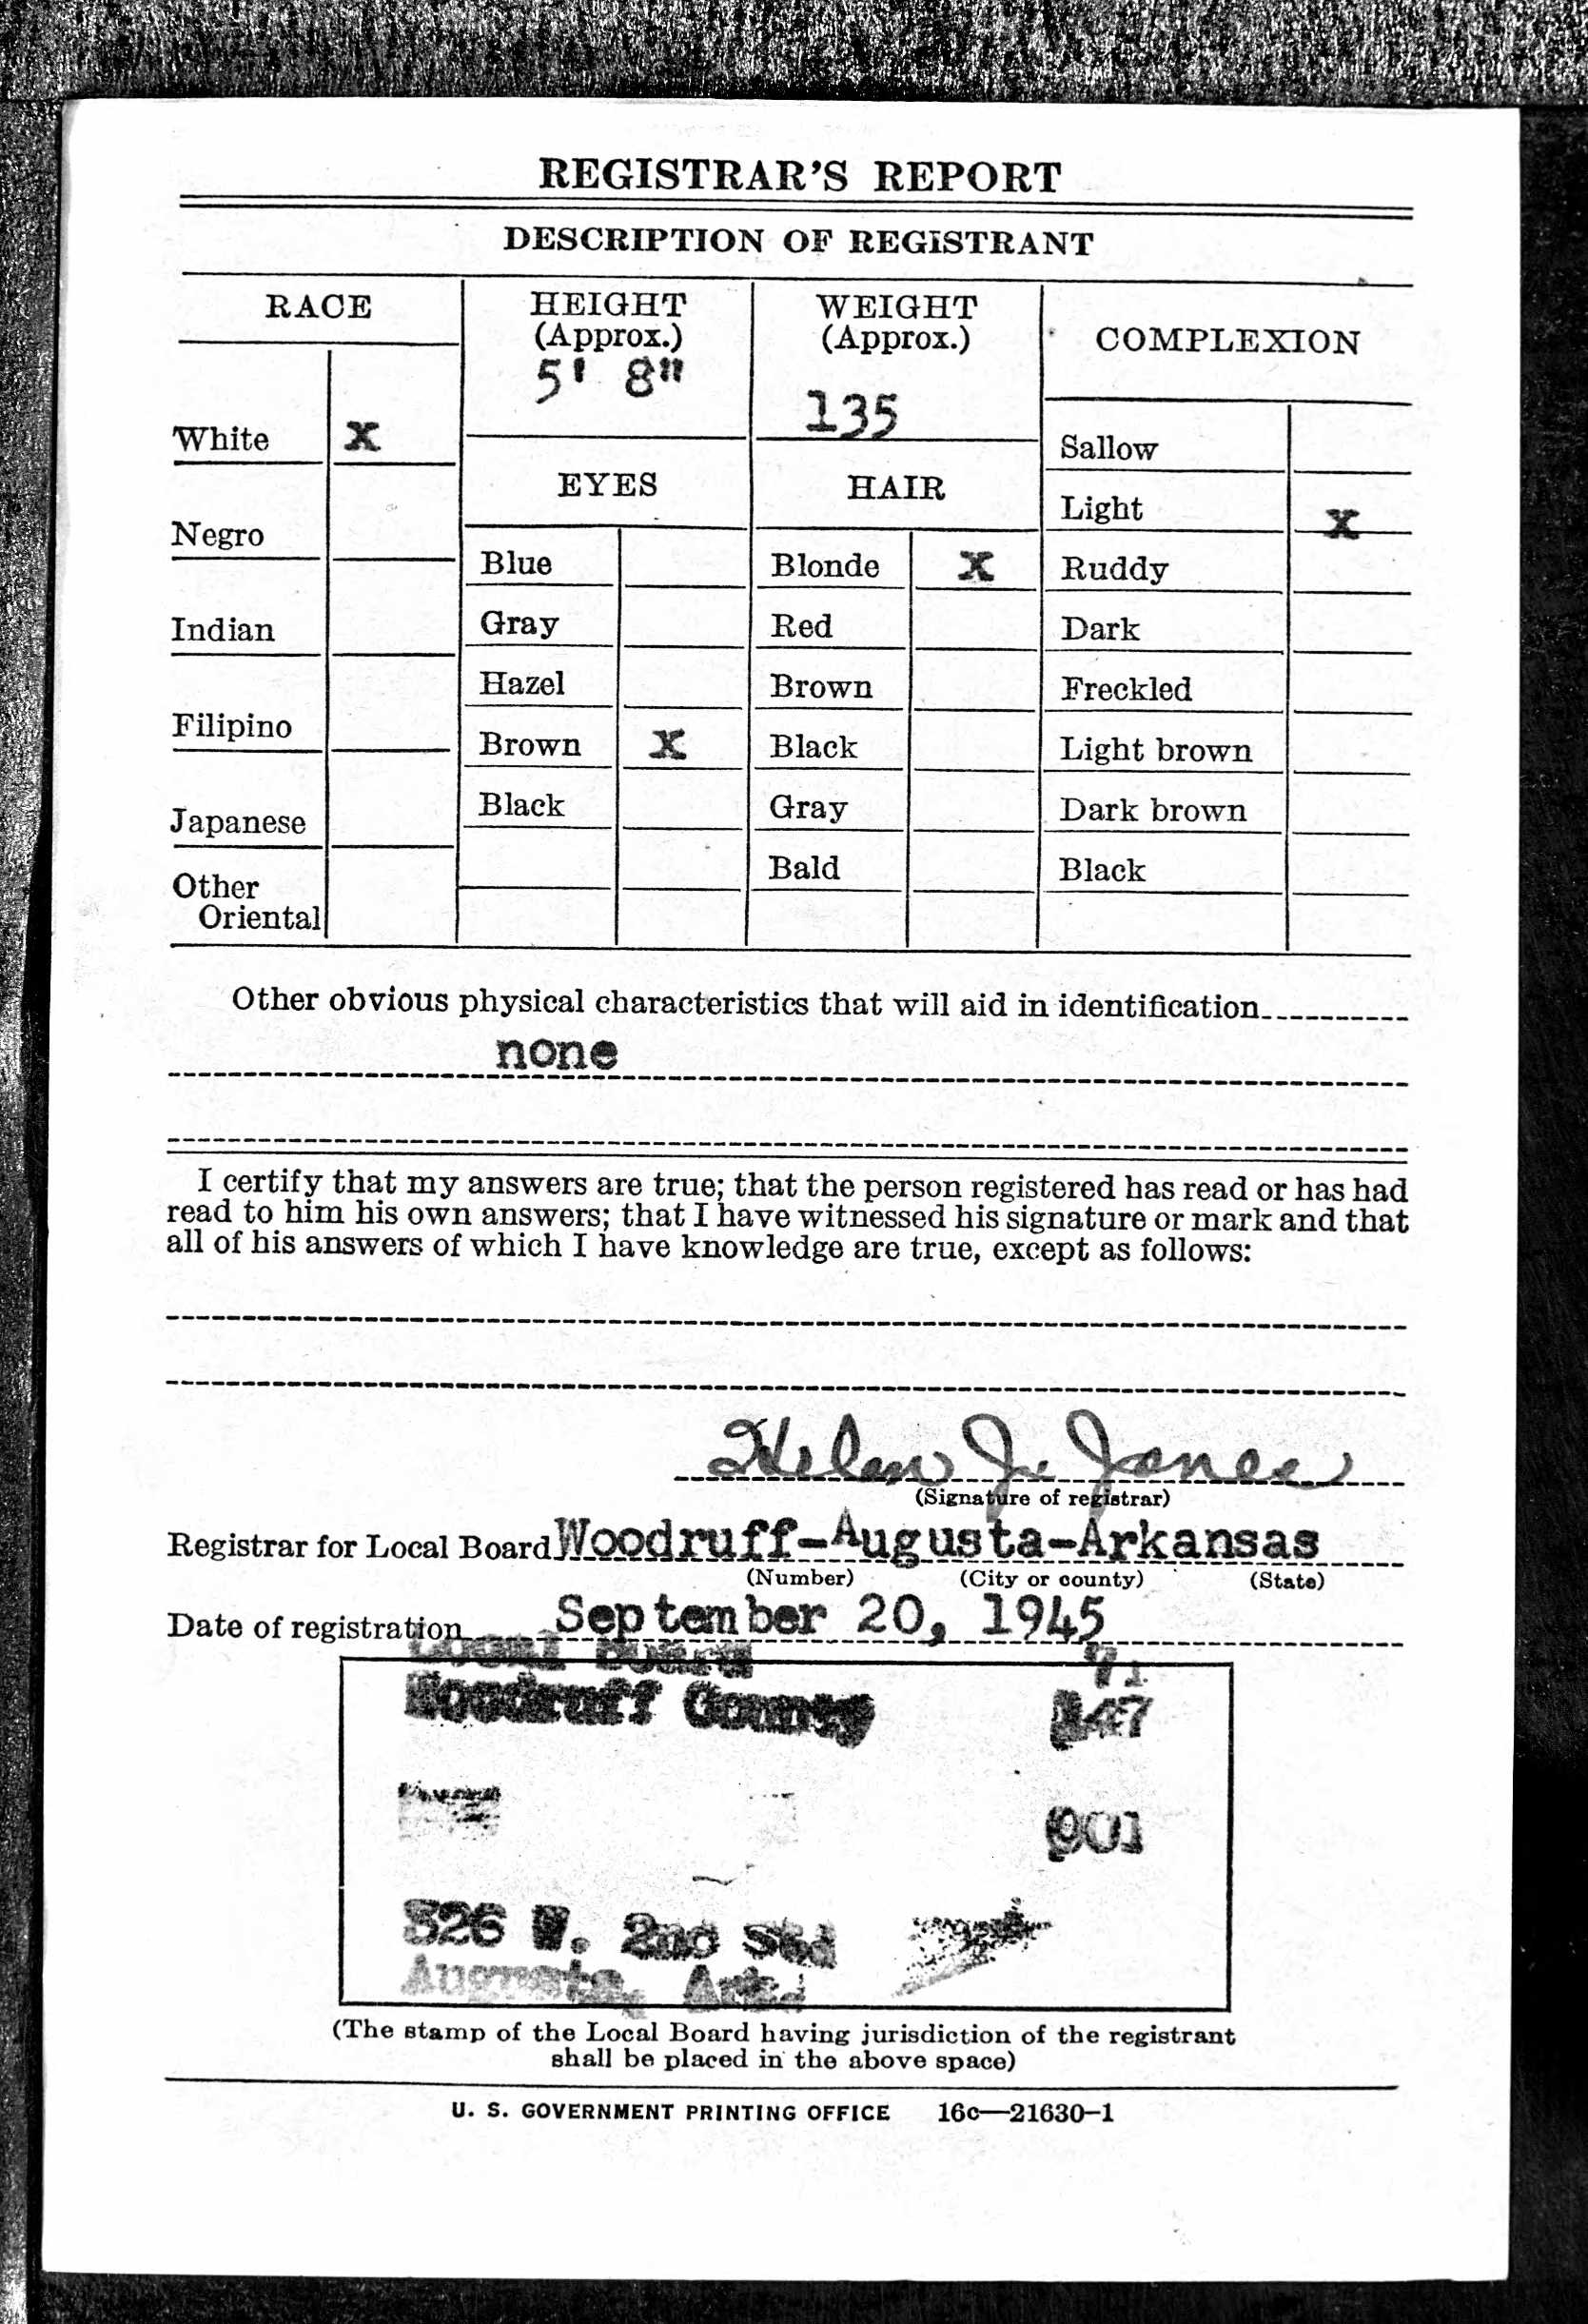 REGISTRAR'S REPORT
DESCRIPTION OF REGISTRANT
RACE
HEIGHT
(Approx.)
5' 8"
WEIGHT
(Approx.)
135
COMPLEXION
White X
Negro
Indian
Filipino
Japanese
Other
Oriental
EYES
Blue
Gray
Hazel
Brown X
Black
HAIR
Blonde X
Red
Brown
Black
Gray
Bald
Sallow
Light X
Ruddy
Dark
Freckled
Light brown
Dark brown
Black
Other obvious physical characteristics that will aid in identification
none
I certify that my answers are true; that the person registered has read or has had
read to him his own answers; that I have witnessed his signature or mark and that
all of his answers of which I have knowledge are true, except as follows:
Helen J. Jones
(Signature of registrar)
Registrar for Local Board Woodruff-Augusta-Arkansas
(Number) (City or county) (State)
Date of registration September 20, 1945
Local Board
Woodruff County 147
901
526 W. 2nd
Augusta, Ark.
(The stamp of the Local Board having jurisdiction of the registrant
shall be placed in the above space)
U. S. GOVERNMENT PRINTING OFFICE 16c—21630-1